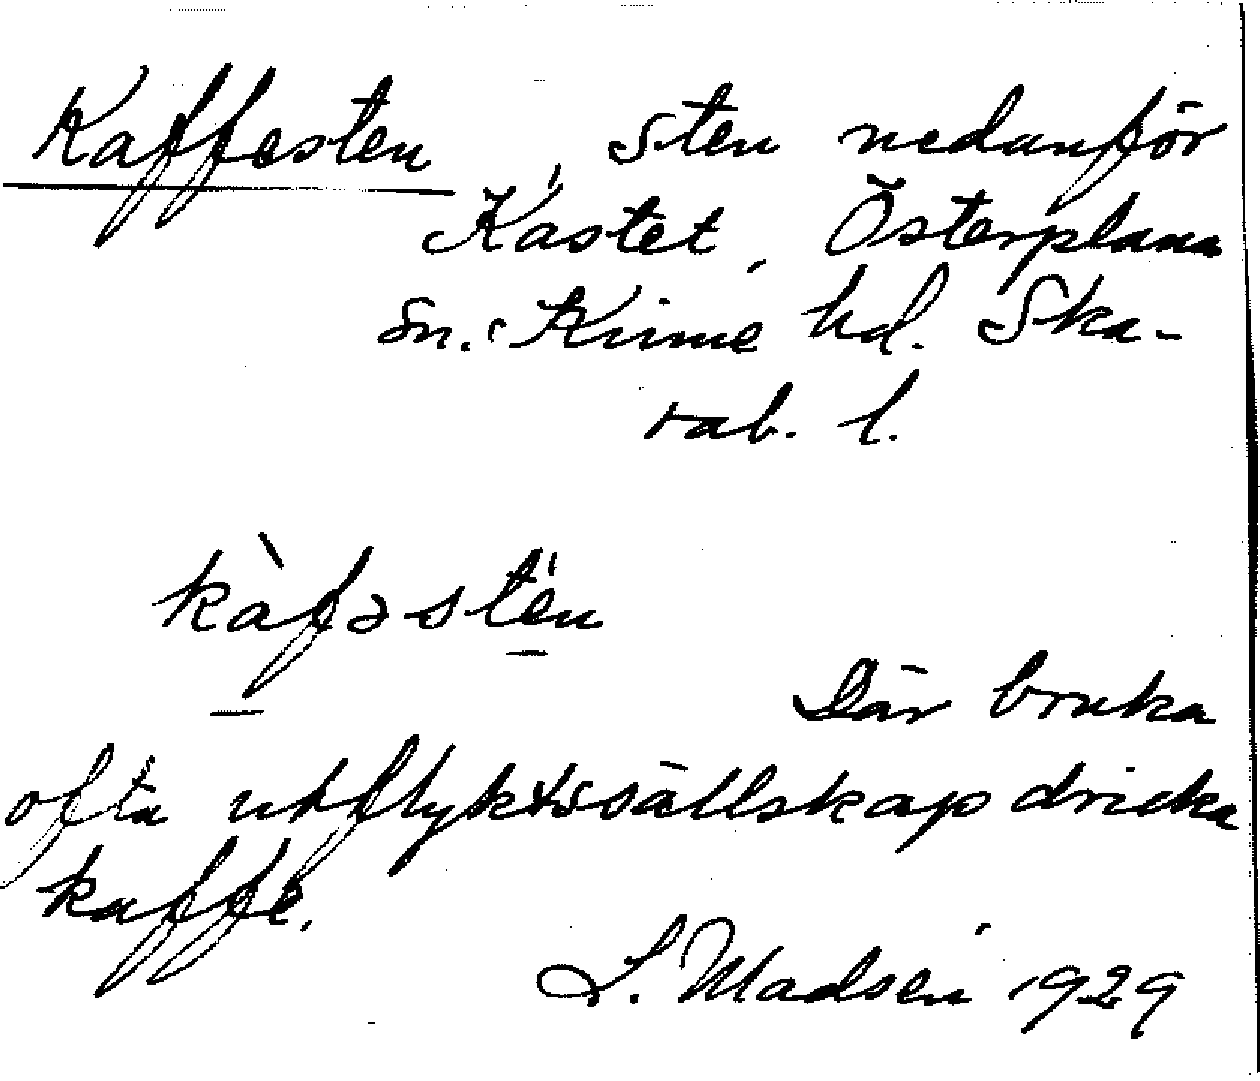 Kaffesten, sten nedanför
Kastet, Österplana
sn. Kinne hd. Ska-
rab. l.
kàfəstén
Där bruka
ofta utflyktssällskap dricka
kaffe.
S. Madsen 1929